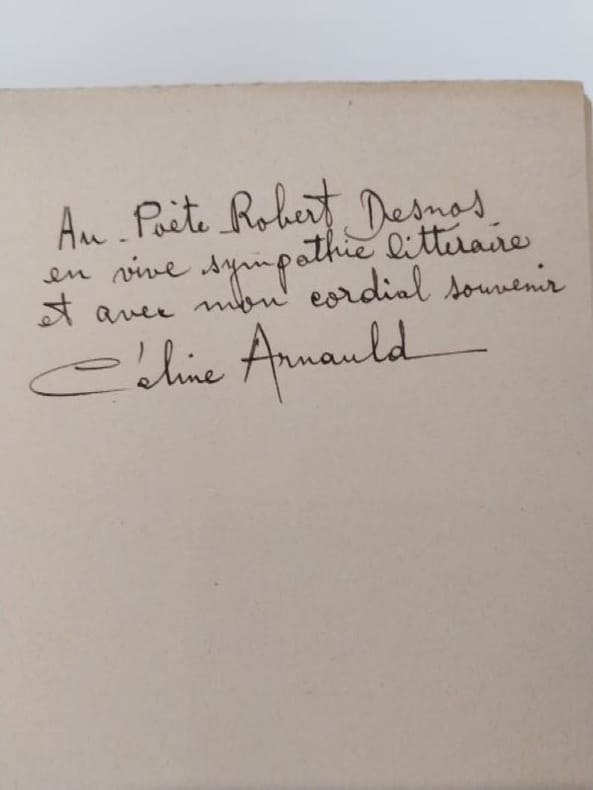 Au Poète Robert Desnos
en vive sympathie litteraire
et avec mon cordial souvenir
Céline Arnauld